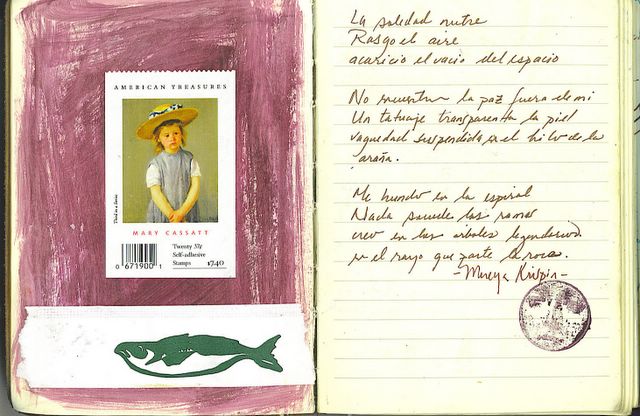 AMERICAN TREASURES
Third in a Series
MARY CASSATT
0 671900 1
Twenty 37¢
Self-adhesive
Stamps $7.40
La soledad nutre
Rasgo el aire
acaricio el vacio del espacio
No encuentro la paz fuera de mi
Un tatuaje transparenta la piel
vaguedad suspendida en el hilo de la
araña.
Me hundo en la espiral
Nada sacude las ramas
creo en los arboles legendarios
en el rayo que parte la roca.